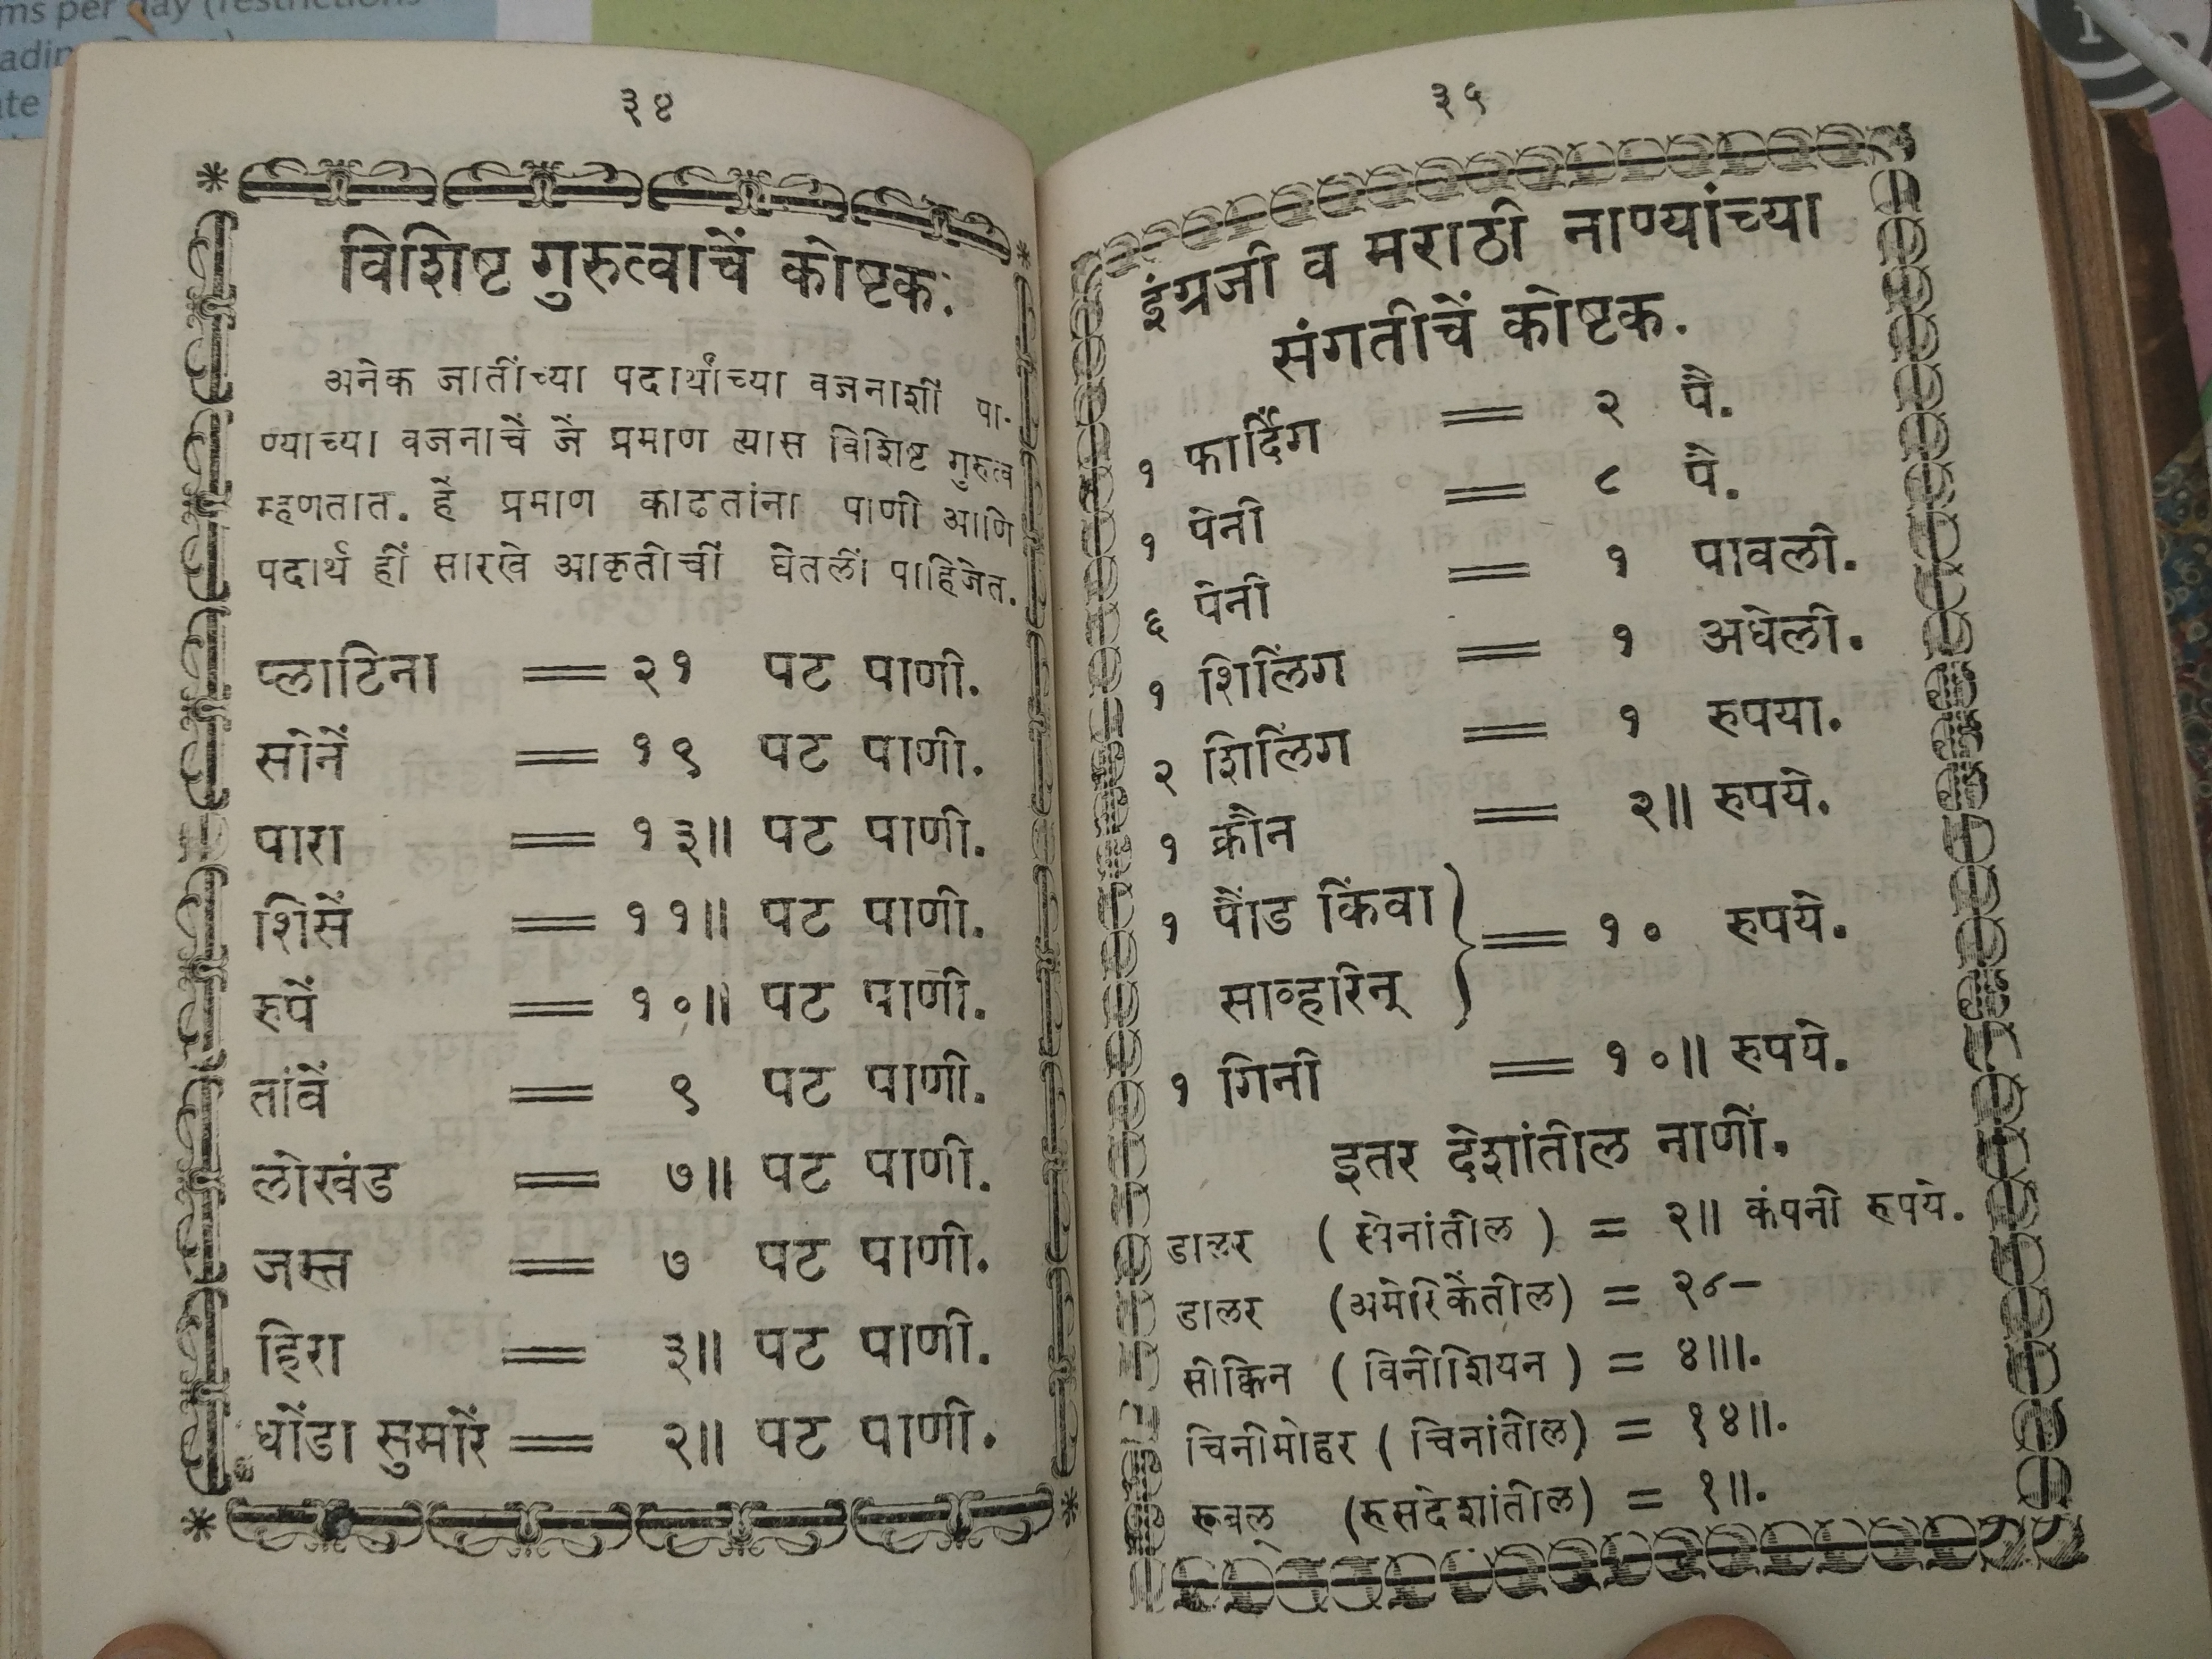 ms per day (restrictions
३४
विशिष्ट गुरुत्वाचें कोष्टक.
अनेक जातींच्या पदार्थांच्या वजनाशीं पा-
ण्याच्या वजनाचें जें प्रमाण त्यास विशिष्ट गुरुत्व
म्हणतात. हें प्रमाण काढतांना पाणी आणि
पदार्थ हीं सारखे आकृतीचीं घेतलीं पाहिजेत.
प्लाटिना = २१ पट पाणी.
सोनें = १९ पट पाणी.
पारा = १३॥ पट पाणी.
शिसें = ११॥ पट पाणी.
रुपें = १०॥ पट पाणी.
तांबें = ९ पट पाणी.
लोखंड = ७॥ पट पाणी.
जस्त = ७ पट पाणी.
हिरा = ३॥ पट पाणी.
धोंडा सुमारें = २॥ पट पाणी.
३५
इंग्रजी व मराठी नाण्यांच्या
संगतीचें कोष्टक.
१ फार्दिंग = २ पै.
१ पेनी = ८ पै.
६ पेनी = १ पावली.
१ शिलिंग = १ अधेली.
२ शिलिंग = १ रुपया.
१ क्रौन = २॥ रुपये.
१ पौंड किंवा
साव्हरिन् } = १० रुपये.
१ गिनी = १०॥ रुपये.
इतर देशांतील नाणीं.
डालर (स्पेनांतील) = २॥ कंपनी रुपये.
डालर (अमेरिकेंतील) = २४-
सीक्किन (विनीशियन) = ४॥।.
चिनीमोहर (चिनांतील) = १४॥.
रूबल् (रुसदेशांतील) = १॥.